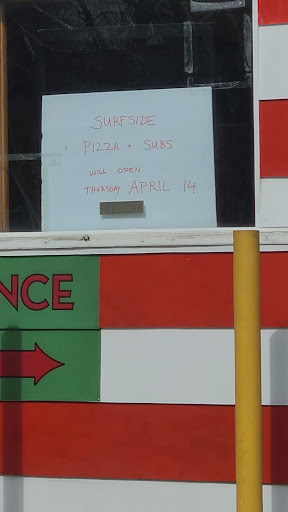 SURFSIDE
PIZZA + SUBS
WILL OPEN
THURSDAY APRIL 14
NCE